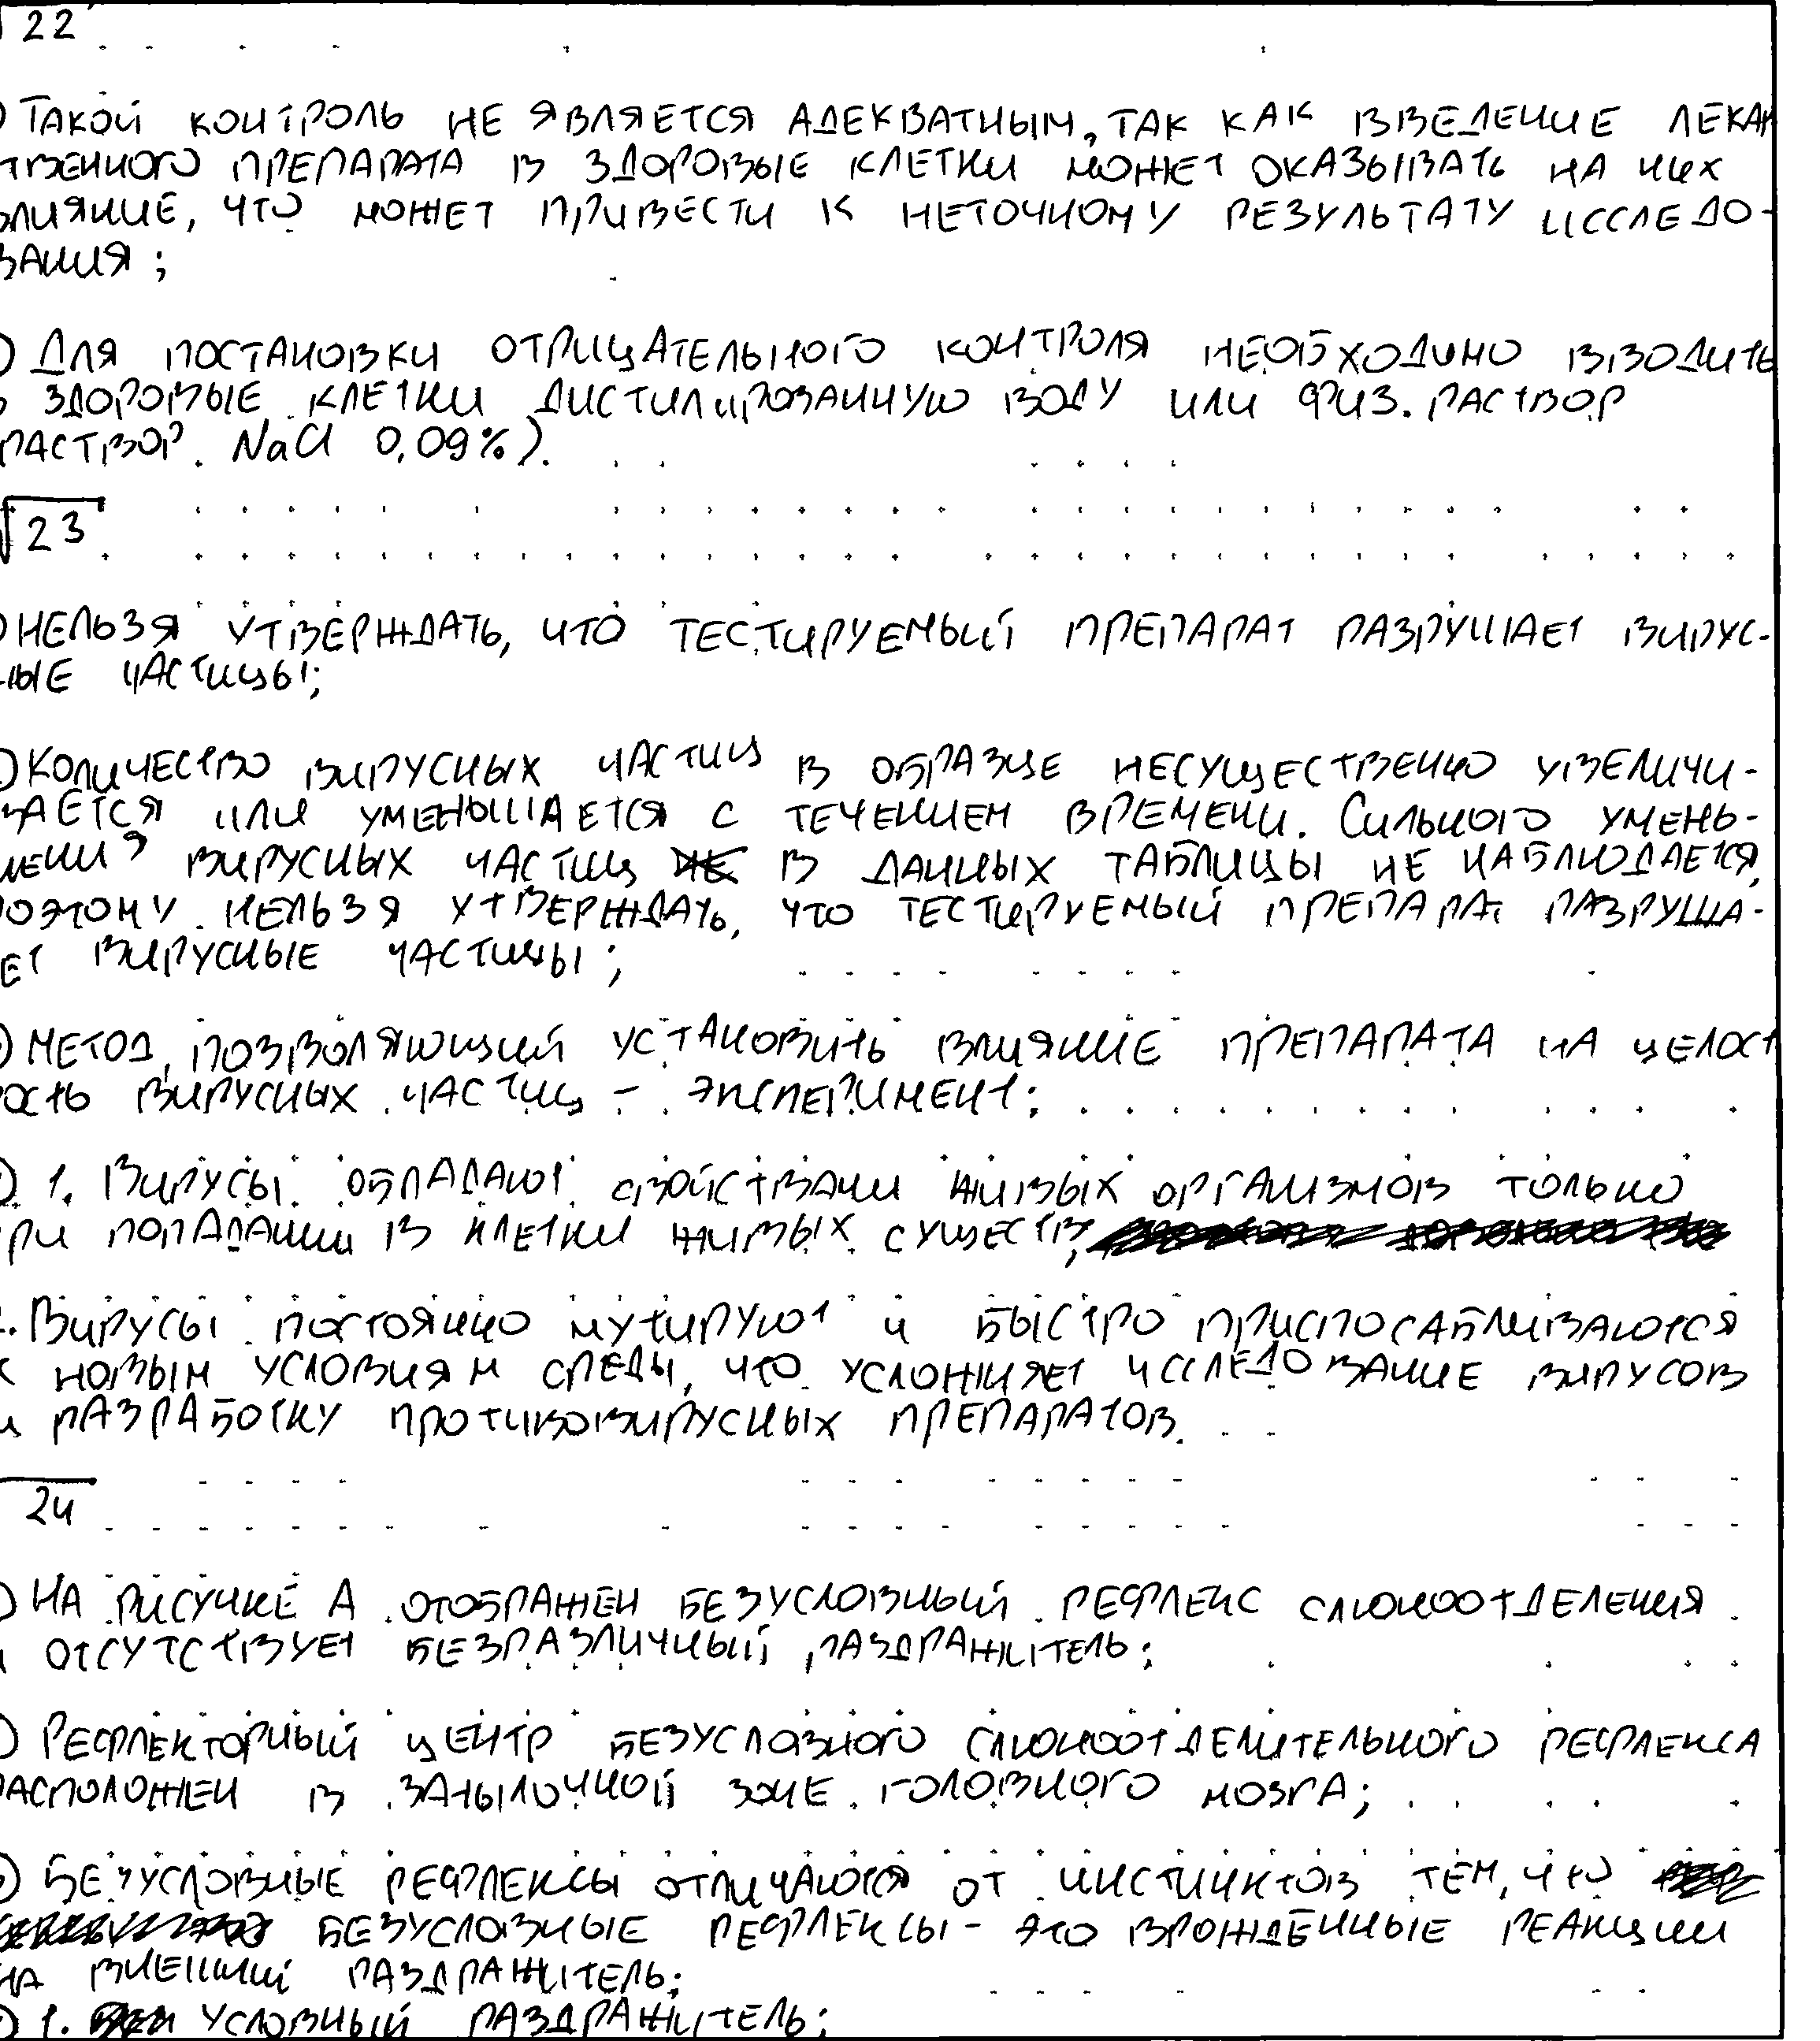 22
) Такой контроль не является адекватным, так как введение лекар
твенного препарата в здоровые клетки может оказывать на них
влияние, что может привести к неточному результату исследо-
вания;
) Для постановки отрицательного контроля необходимо вводить
в здоровые клетки дистилированную воду или физ. раствор
раствор NaCl 0,09%).
23
) Нельзя утверждать, что тестируемый препарат разрушает вирус-
ные частицы;
) Количество вирусных частиц в образце несущественно увеличи-
вается или уменьшается с течением времени. Сильного умень-
шения вирусных частиц в данных таблицы не наблюдается,
поэтому нельзя утверждать, что тестируемый препарат разруша-
ет вирусные частицы;
) Метод, позволяющий установить влияние препарата на целост
ность вирусных частиц - эксперимент;
) 1. Вирусы обладают свойствами живых организмов только
при попадании в клетки живых существ;
2. Вирусы постоянно мутируют и быстро приспосабливаются
к новым условиям среды, что усложняет исследование вирусов
и разработку противовирусных препаратов.
24
) На рисунке А отображен безусловный рефлекс слюноотделения
и отсутствует безразличный раздражитель;
) Рефлекторный центр безусловного слюноотделительного рефлекса
расположен в затылочной зоне головного мозга;
) Безусловные рефлексы отличаются от инстинктов тем, что
безусловные рефлексы - это врождённые реакции
на внешний раздражитель;
) 1. условный раздражитель;